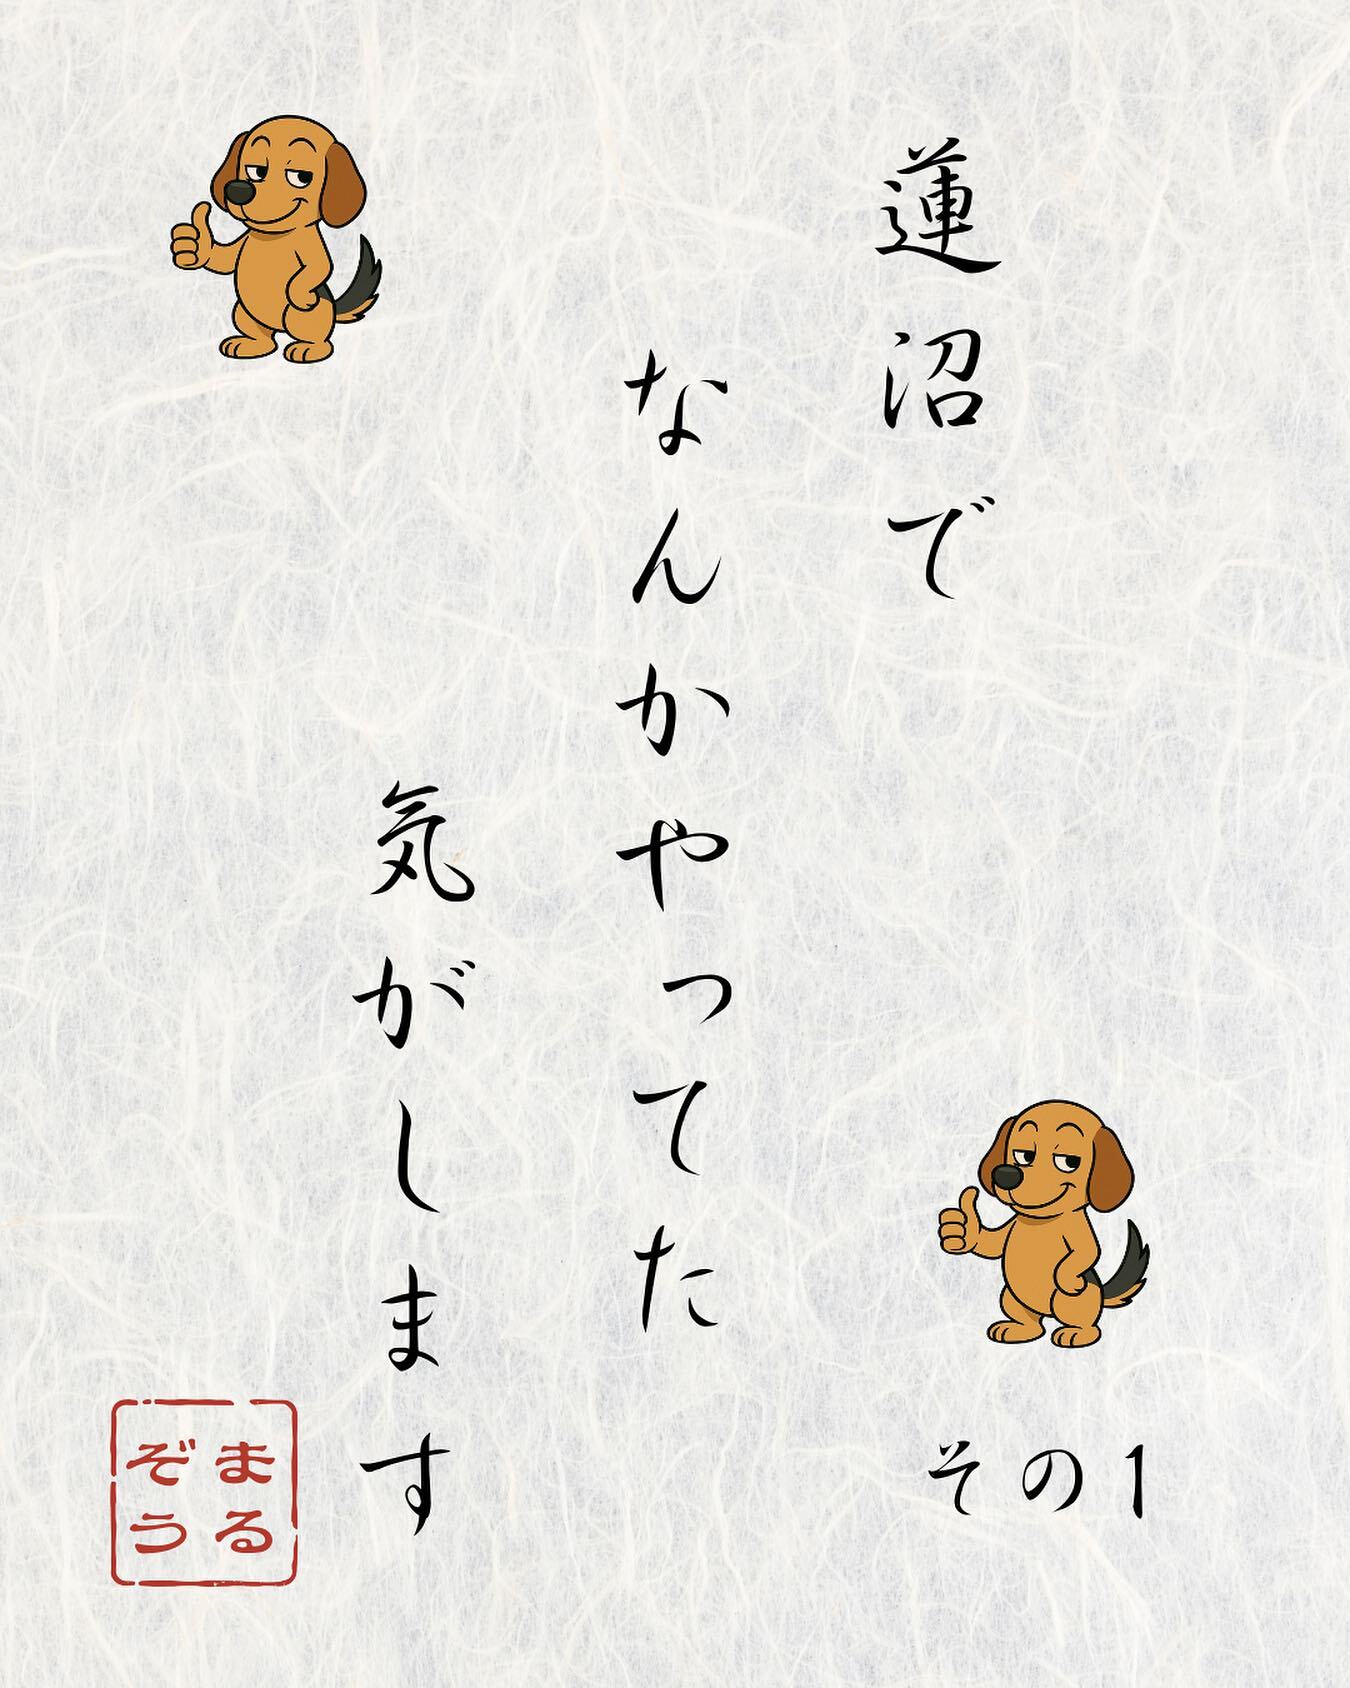 蓮沼で
なんかやってた
気がします
その1
まる
ぞう